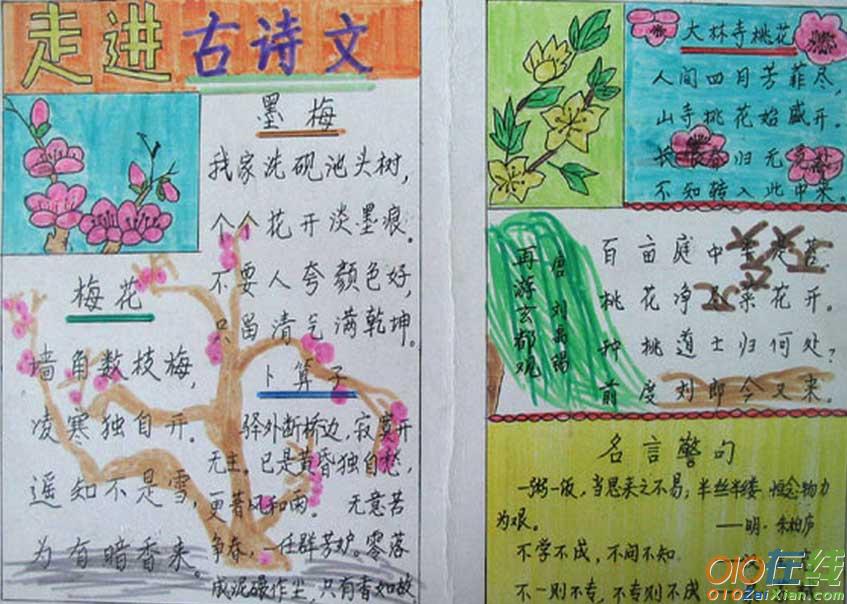 走进古诗文
墨梅
我家洗砚池头树，
个个花开淡墨痕。
不要人夸颜色好，
只留清气满乾坤。
梅花
墙角数枝梅，
凌寒独自开。
遥知不是雪，
为有暗香来。
卜算子
驿外断桥边，寂寞开
无主。已是黄昏独自愁，
更著风和雨。 无意苦
争春，一任群芳妒。零落
成泥碾作尘，只有香如故
大林寺桃花
人间四月芳菲尽，
山寺桃花始盛开。
长恨春归无觅处
不知转入此中来。
再游玄都观
唐 刘禹锡
百亩庭中
苔，
桃花净尽菜花开。
种桃道士归何处？
前度刘郎今又来。
名言警句
一粥一饭，当思来之不易；半丝半缕，恒念物力
为艰。
——明·朱柏庐
不学不成，不问不知。
不一则不专，不专则不成
OIO在线
OIOZaiXian.com